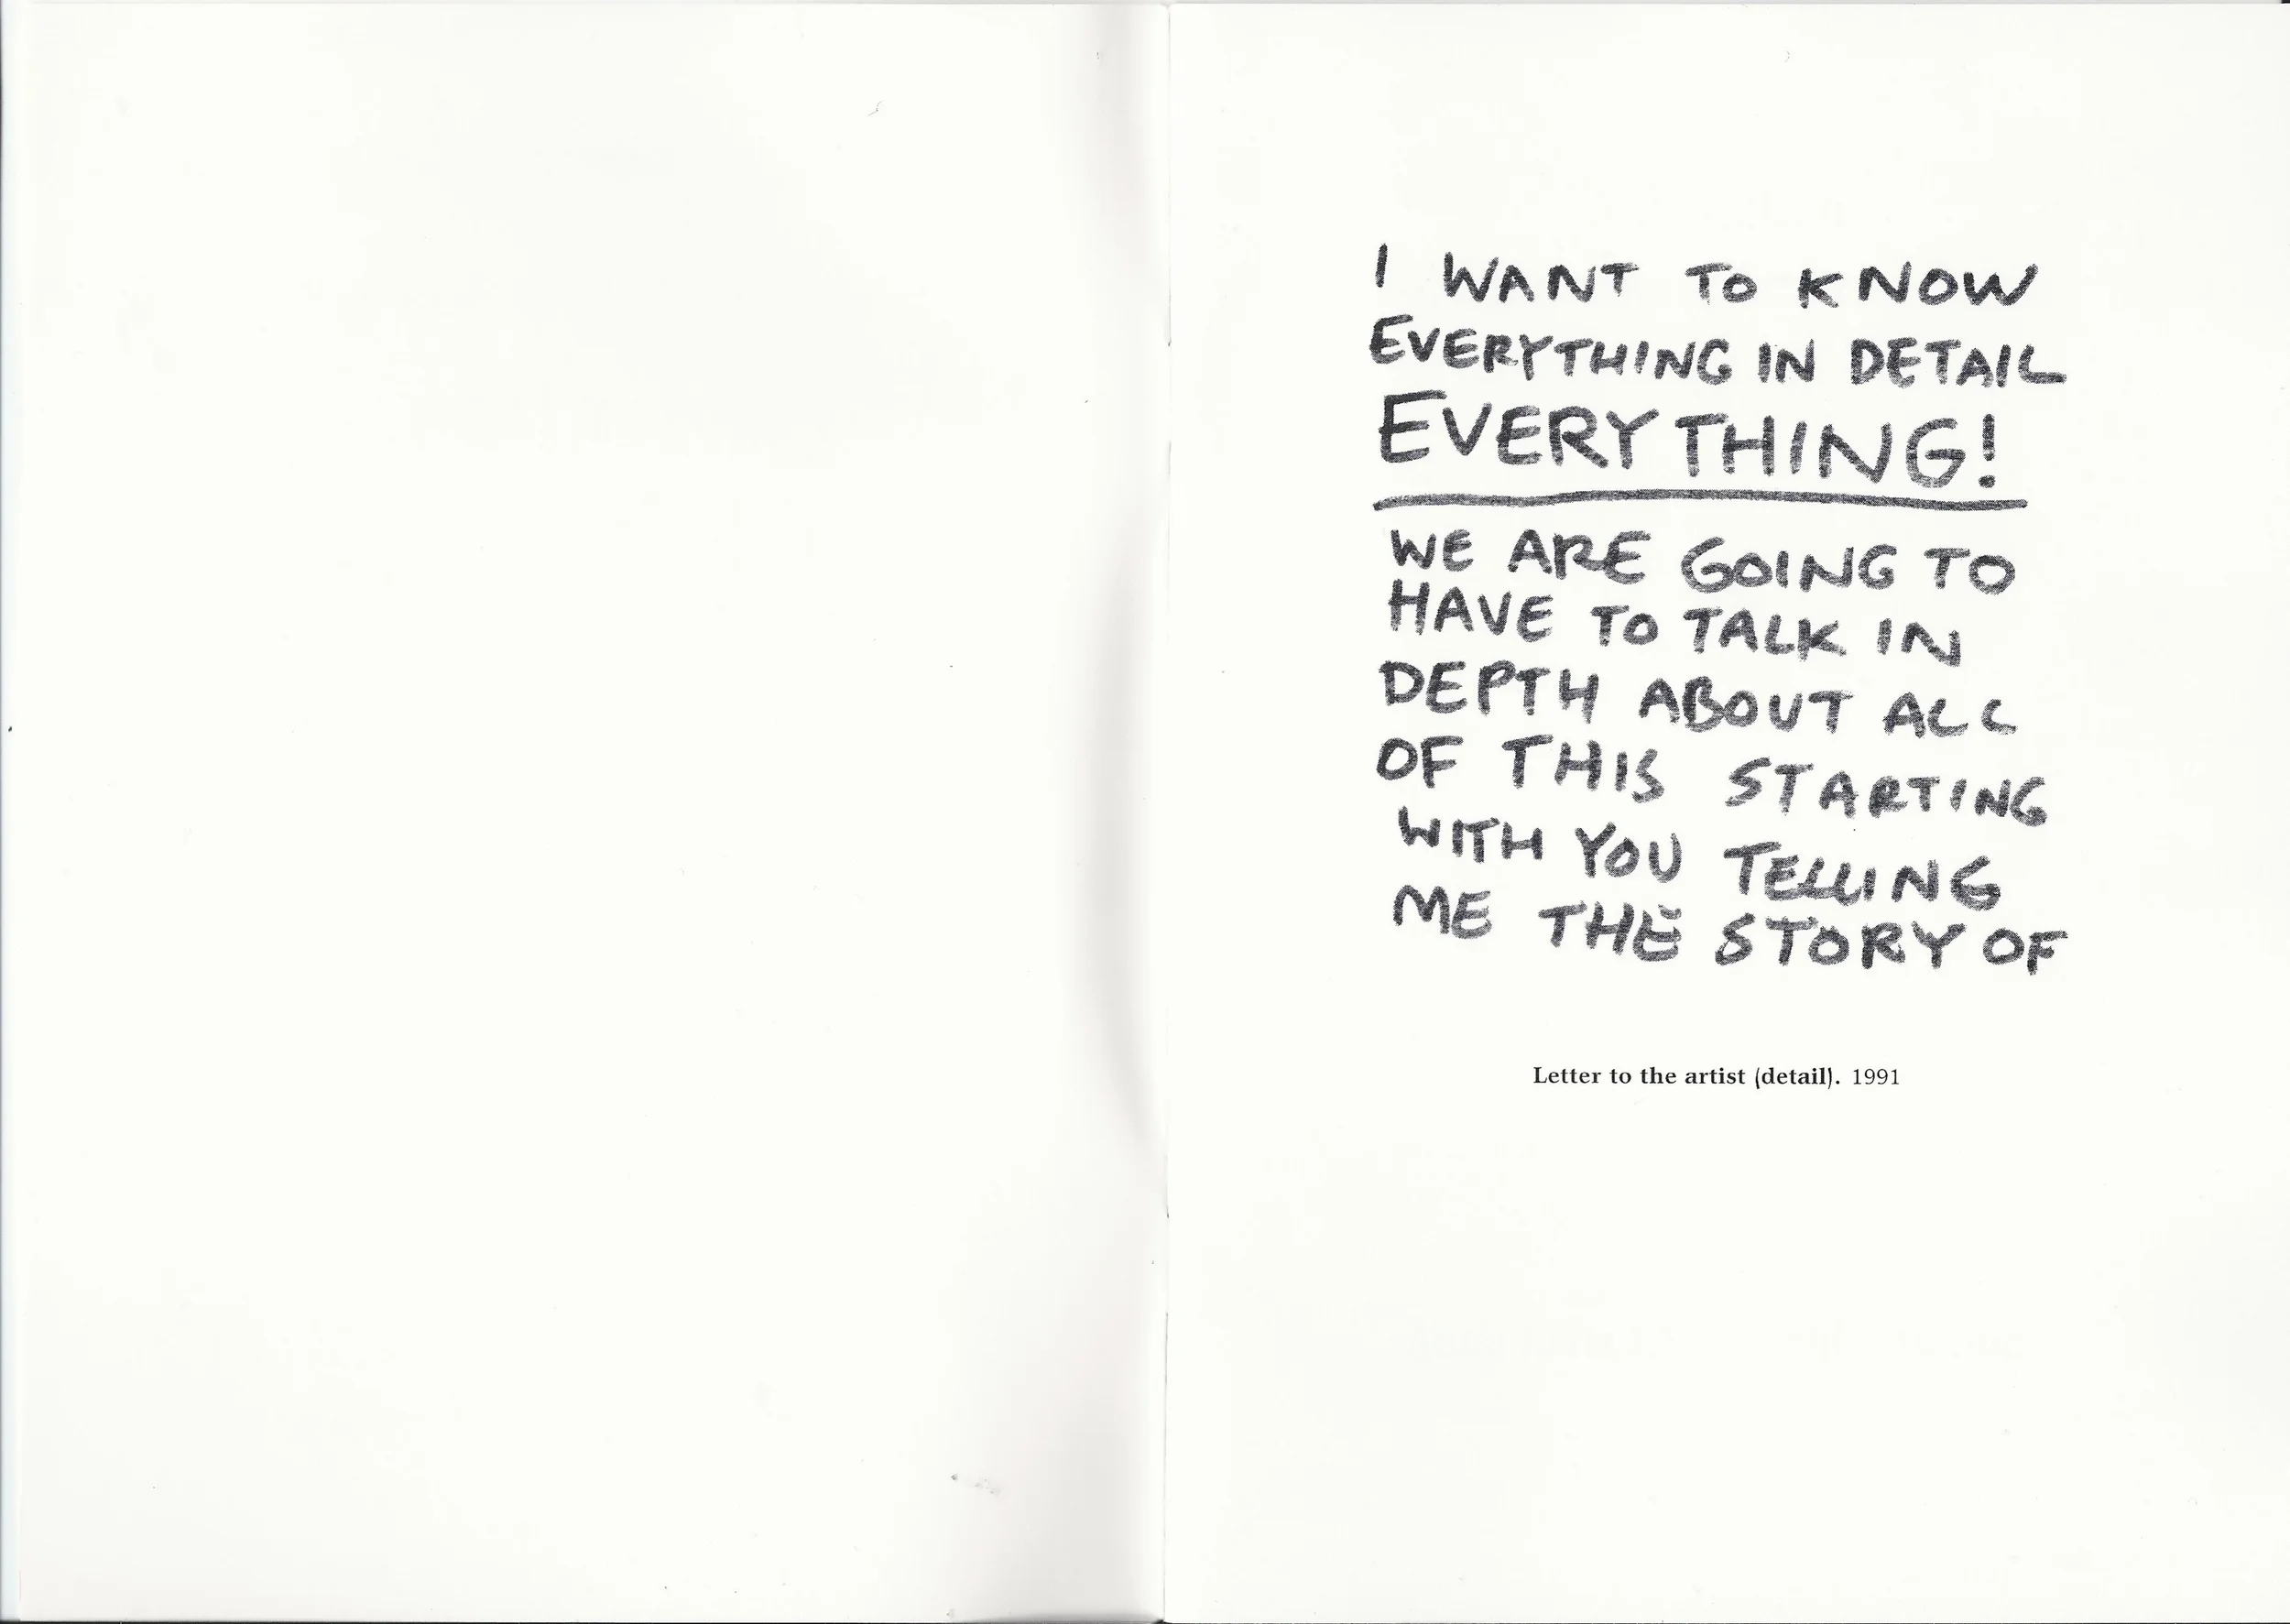 I WANT TO KNOW
EVERYTHING IN DETAIL
EVERYTHING!
WE ARE GOING TO
HAVE TO TALK IN
DEPTH ABOUT ALL
OF THIS STARTING
WITH YOU TELLING
ME THE STORY OF
Letter to the artist (detail). 1991